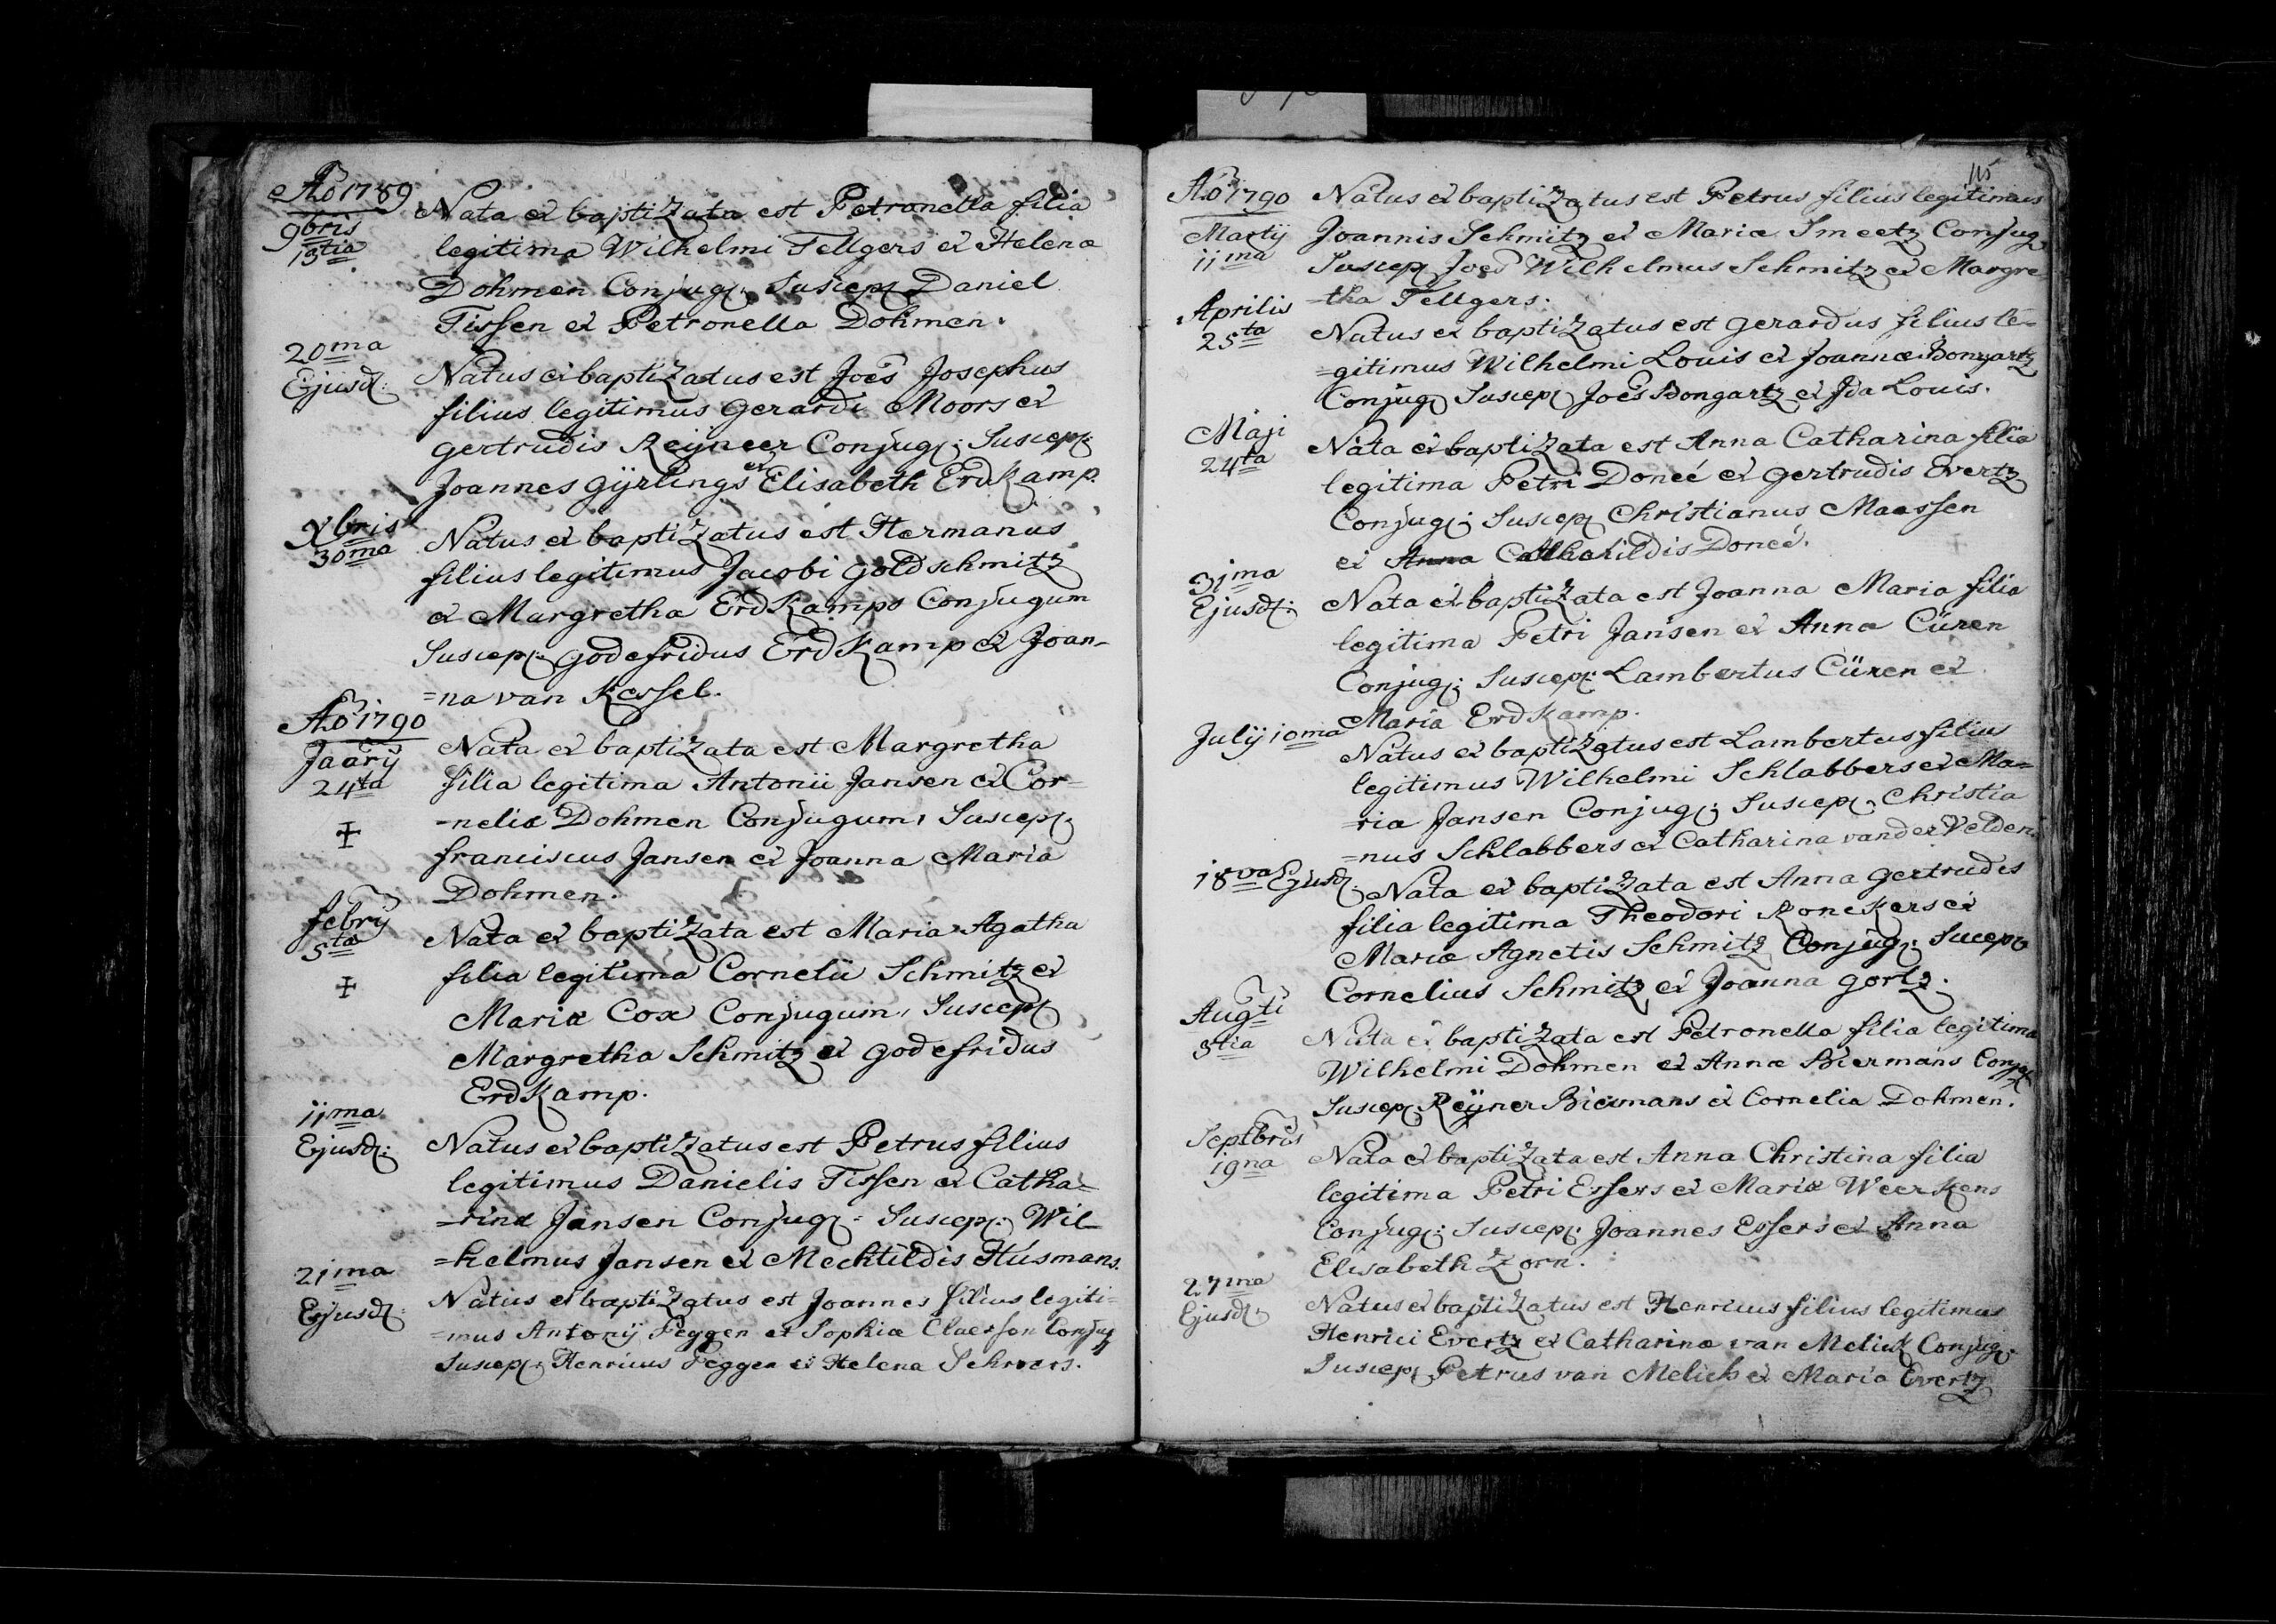 Aō 1789
9bris
13tia
Nata et baptizata est Petronella filia
legitima Wilhelmi Tellgers et Helena
Dohmen Conjug: Suscep: Daniel
Tissen et Petronella Dohmen.
20ma
Ejusd:
Natus et baptizatus est Joēs Josephus
filius legitimus Gerardi Moors et
Gertrudis Reijneer Conjug: Suscep:
Joannes Gÿrlings et Elisabeth Erdkamp.
Xbris
30ma
Natus et baptizatus est Hermanus
filius legitimus Jacobi Goldschmitz
et Margretha Erdkamps Conjugum
Suscep: Godefridus Erdkamp et Joan-
=na van Kessel.
Aō 1790
Jāarij
24ta
Nata et baptizata est Margretha
filia legitima Antonii Jansen et Cor=
=nelia Dohmen Conjugum, Suscep:
franciscus Jansen et Joanna Maria
Dohmen.
febrij
5ta
Nata et baptizata est Maria Agatha
filia legitima Cornelii Schmitz et
Maria Cox Conjugum, Suscep:
Margretha Schmitz et Godefridus
Erdkamp.
11ma
Ejusd:
Natus et baptizatus est Petrus filius
legitimus Danielis Tissen et Catha=
=rina Jansen Conjug: Suscep: Wil-
=helmus Jansen et Mechtildis Húsmans.
21ma
Ejusd:
Natus et baptizatus est Joannes filius legiti=
=mus Antonij Peggen et Sophiæ Claessen Conjug
Suscep: Henricus Peggen et Helena Schroers.
115
Aō 1790
Martij
11ma
Natus et baptizatus est Petrus filius legitimus
Joannis Schmitz et Maria Smeetz Conjug
Suscep: Joēs Wilhelmus Schmitz et Margre
=tha Tellgers.
Aprilis
25ta
Natus et baptizatus est Gerardus filius le=
=gitimus Wilhelmi Louis et Joannæ Bongartz
Conjug: Suscep: Joēs Bongartz et Ida Louis.
Maji
24ta
Nata et baptizata est Anna Catharina filia
legitima Petri Doneé et Gertrudis Evertz
Conjug: Suscep: Christianus Maassen
et Anna Doneé.
31ma
Ejusd:
Nata et baptizata est Joanna Maria filia
legitima Petri Jansen et Anna Cüren
Conjug: Suscep: Lambertus Cüren et
Maria Erdkamp.
Julij 10ma
Natus et baptizatus est Lambertus filius
legitimus Wilhelmi Schlabbers et Ma=
=ria Jansen Conjug: Suscep: Christia
=nus Schlabbers et Catharina vander Velden.
18va Ejusd:
Nata et baptizata est Anna Gertrudis
filia legitima Theodori Ronckers et
Mariæ Agnetis Schmitz Conjug: Sucep
Cornelius Schmitz et Joanna Gortz.
Augti
3tia
Nata et baptizata est Petronella filia legitima
Wilhelmi Dohmen et Annæ Biermans Conjug
Suscep: Reÿner Biermans et Cornelia Dohmen.
Septbris
19na
Nata et baptizata est Anna Christina filia
legitima Petri Essers et Mariæ Weerkens
Conjug: Suscep: Joannes Essers et Anna
Elisabeth Zorn.
27ma
Ejusd:
Natus et baptizatus est Henricus filius legitimus
Henrici Evertz et Catharinæ van Melick Conjug:
Suscep: Petrus van Melick et Maria Evertz